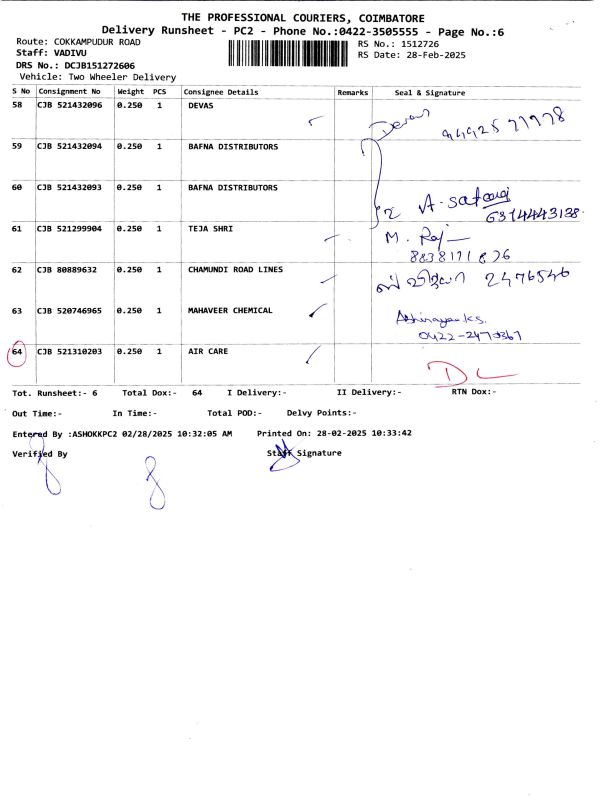 THE PROFESSIONAL COURIERS, COIMBATORE
Delivery Runsheet - PC2 - Phone No.:0422-3505555 - Page No.:6
Route: COKKAMPUDUR ROAD
RS No.: 1512726
Staff: VADIVU
RS Date: 28-Feb-2025
DRS No.: DCJB151272606
Vehicle: Two Wheeler Delivery
S No Consignment No Weight PCS Consignee Details Remarks Seal & Signature
58 CJB 521432096 0.250 1 DEVAS
59 CJB 521432094 0.250 1 BAFNA DISTRIBUTORS
60 CJB 521432093 0.250 1 BAFNA DISTRIBUTORS
6374443138
61 CJB 521299904 0.250 1 TEJA SHRI M. Raj
62 CJB 80889632 0.250 1 CHAMUNDI ROAD LINES 2476546
63 CJB 520746965 0.250 1 MAHAVEER CHEMICAL
64 CJB 521310203 0.250 1 AIR CARE
Tot. Runsheet:- 6 Total Dox:- 64 I Delivery:- II Delivery:- RTN Dox:-
Out Time:- In Time:- Total POD:- Delvy Points:-
Entered By :ASHOKKPC2 02/28/2025 10:32:05 AM Printed On: 28-02-2025 10:33:42
Verified By Staff Signature